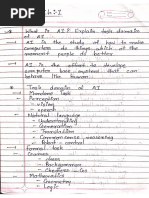 Ch:1
* What is AI? Explain task domain of AI.
→ AI is the study of how to make computers do things which at the moment people do better.
→ AI is the effort to develop computer base system that can behave like human.
* Task domain of AI
→ Mundane task
- Perception
- vision
- speech
- Natural language
- Understanding
- Generation
- Translation
- Common sense reasoning
- Robot control
→ Formal task
- Games
- chess
- Backgammon
- Checkers
- Mathematics
- Geometry
- Logic